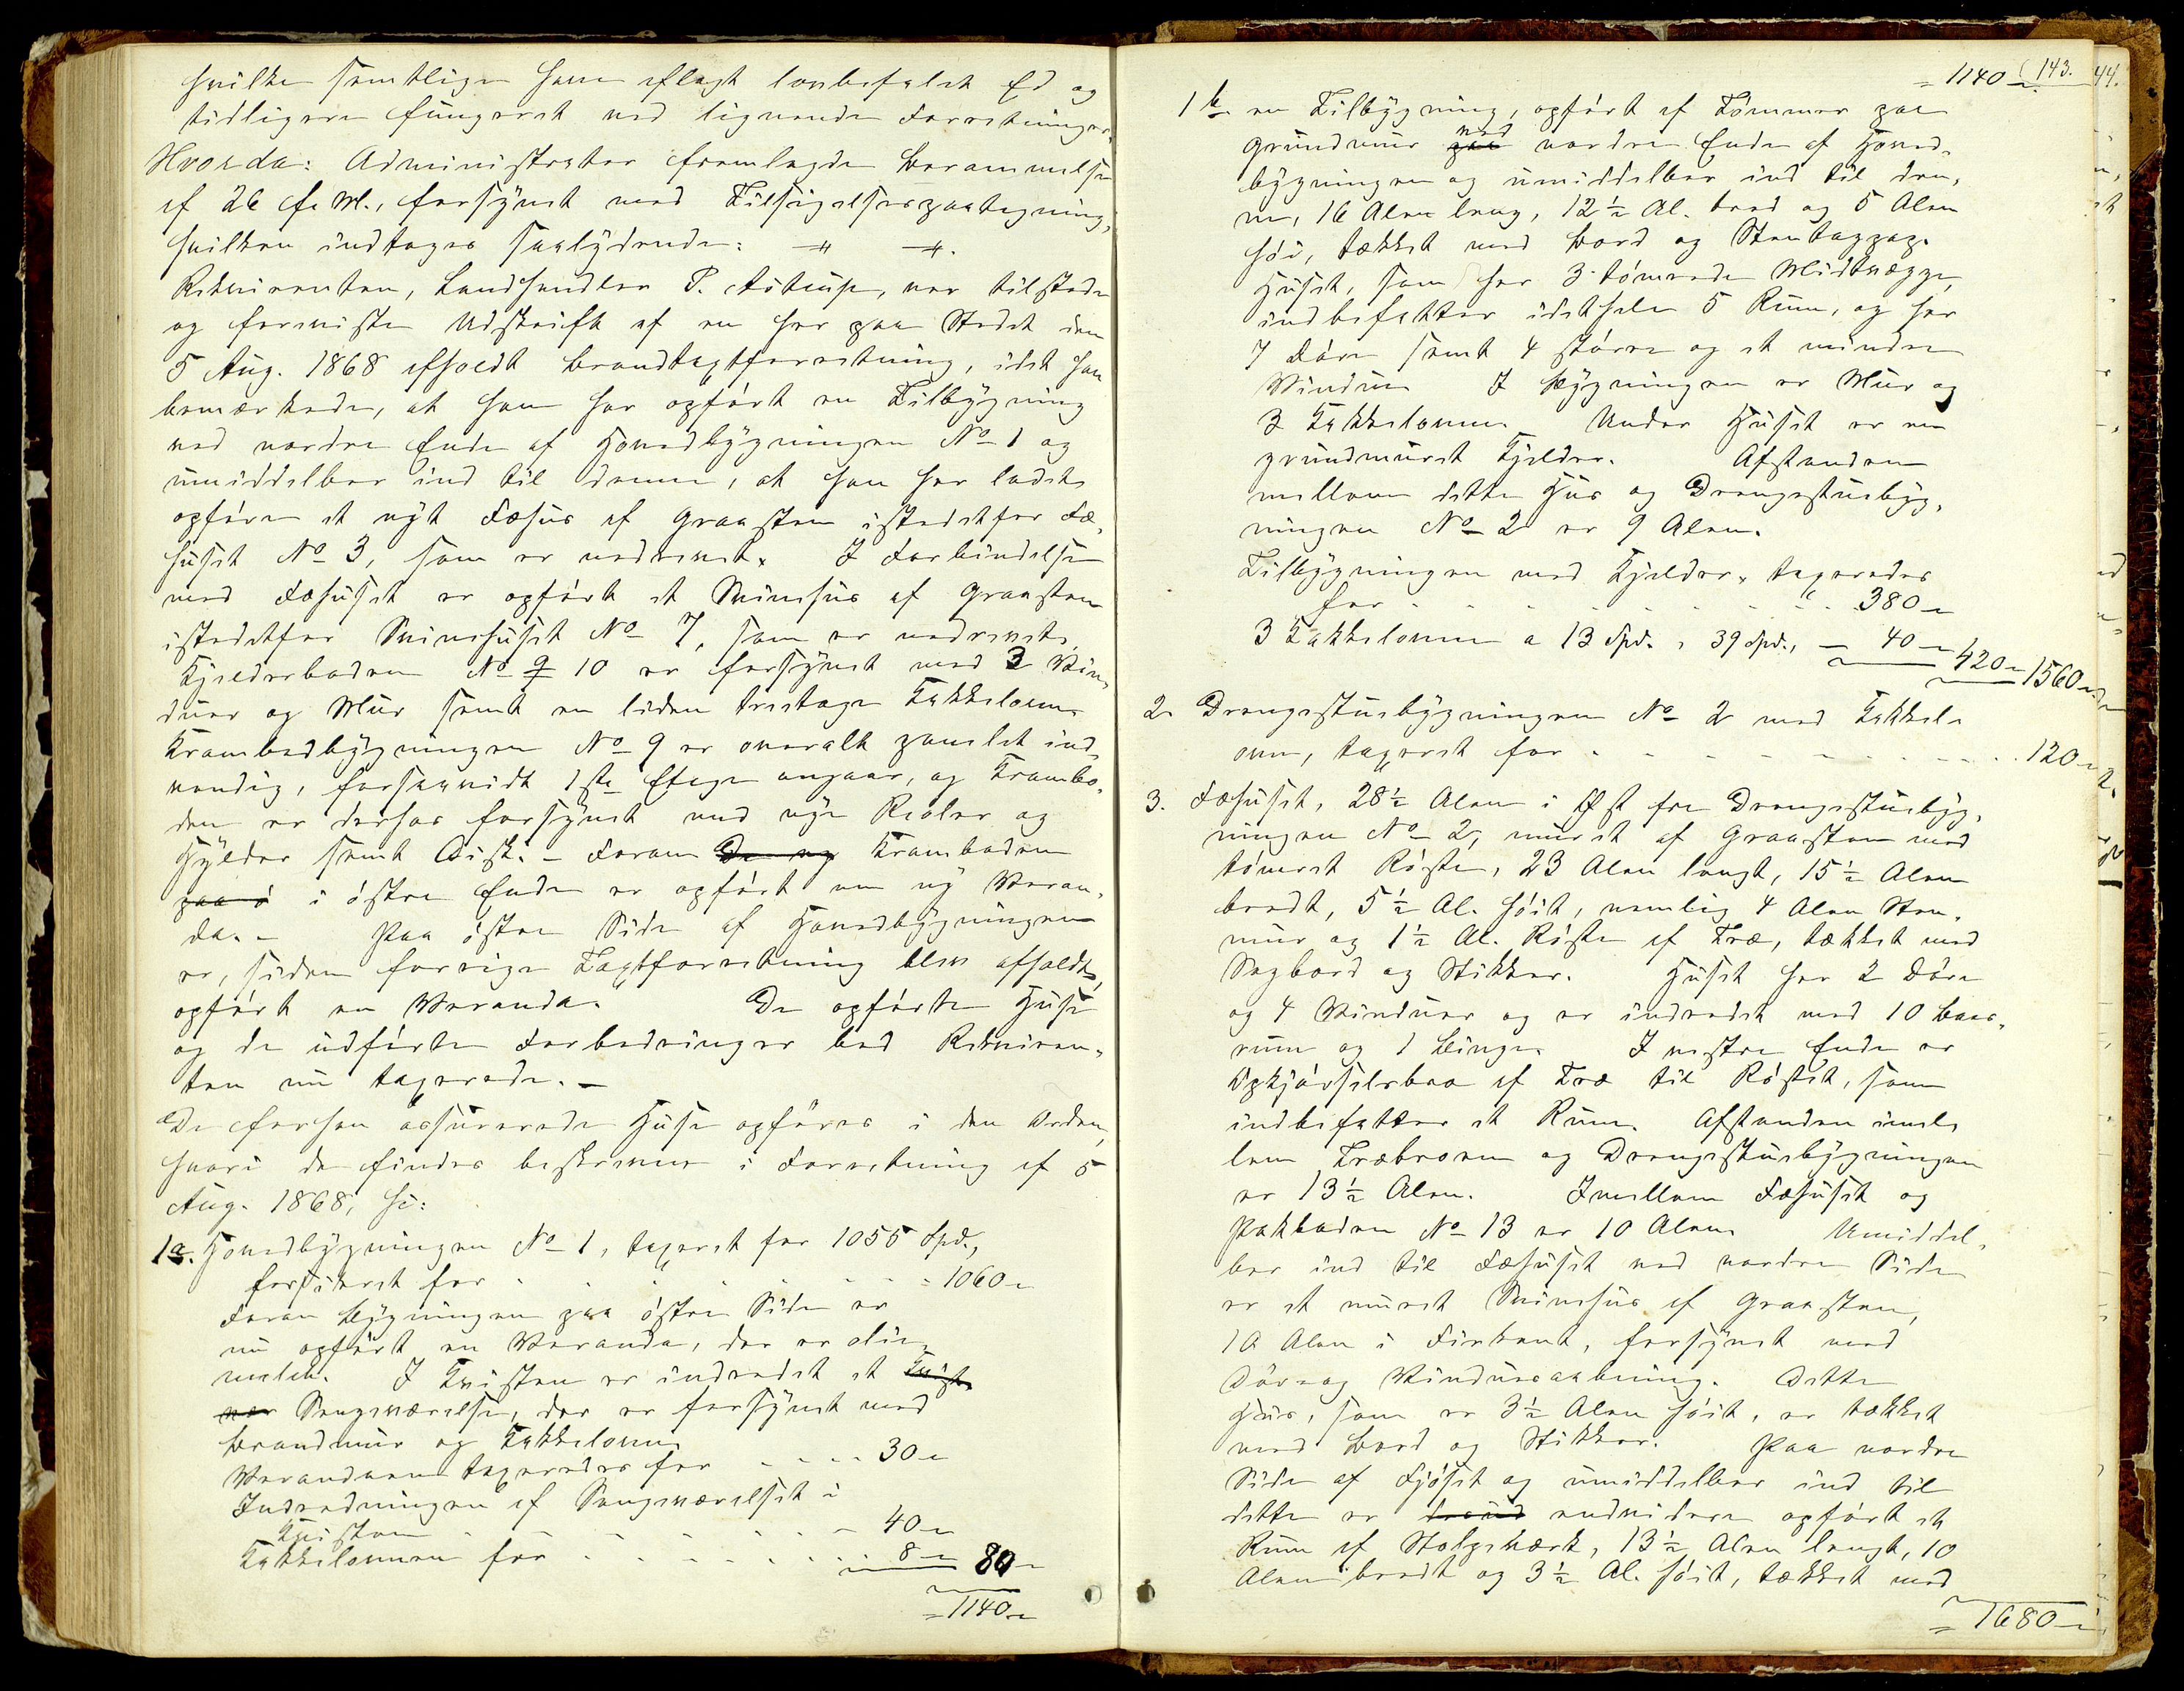 hvilke samtlige have aflagt lovbefalet Ed og
tidligere fungeret ved lignende Forretninger.
Hvorda: Administrator fremlagde Berammelse
af 26 f. M., forsynet med Tilsigelsespaategning,
hvilken indtages saalydende: –"– –"–.
Rekvirenten, Landhandler P. Astrup, var tilstede
og foreviste Udskrift af en her paa Stedet den
5 Aug. 1868 afholdt Brandtaxtforretning, idet han
bemærkede, at han har opført en Tilbygning
ved nordre Ende af Hovedbygningen No 1 og
umiddelbar ind til denne, at han har ladet
opføre et nyt Fæhus af Graasten istedetfor Fæ-
huset No 3, som er nedrevet. I Forbindelse
med Fæhuset er opført et Svinehus af Graasten
istedetfor Svinehuset No 7, som er nedrevet.
Kjelderboden No 9 10 er forsynet med 3 Vin-
duer og Mur samt en liden treetages Kakkelovn.
Krambodbygningen No 9 er overalt panelet ind-
vendig, forsaavidt 1ste Etage angaar, og Krambo-
den er derhos forsynet med nye Reoler og
Hylder samt Disk. – Foran De ny Kramboden
paa ø i østre Ende er opført en ny Veran-
da. – Paa østre Side af Hovedbygningen
er, siden forrige Taxtforretning blev afholdt,
opført en Veranda. De opførte Huse
og de udførte Forbedringer bad Rekviren-
ten nu taxerede. –
De forhen assurerede Huse opføres i den Orden,
hvori de findes beskrevne i Forretning af 5
Aug. 1868, sc:
1a. Hovedbygningen No 1, taxeret for 1055 Spd.,
forsikret for . . . . . . . = 1060 –
Foran Bygningen paa østre Side er
nu opført en Veranda, der er olie-
malet. I Kvisten er indredet et Kvist-
vær Sengeværelse, der er forsynet med
Brandmur og Kakkelovn.
Verandaen taxeredes for . . . . 30 –
Indredningen af Sengeværelset i
Kvisten . . . . . . – 40 –
Kakkelovnen for . . . . . . . 8 – 80 –
= 1140 –
= 1140 – 143.
1b. en Tilbygning, opført af Tømmer paa
Grundmur paa ved nordre Ende af Hoved-
bygningen og umiddelbar ind til den-
ne, 16 Alen lang, 12½ Al. bred og 5 Alen
høi, tækket med Bord og Stentagpap.
Huset, som har 3 tømrede Midtvægge,
indbefatter idethele 5 Rum, og har
7 Døre samt 4 større og et mindre
Vindue. I Bygningen er Mur og
3 Kakkelovne. Under Huset er en
grundmuret Kjelder. Afstanden
mellem dette Hus og Drengestuebyg-
ningen No 2 er 9 Alen.
Tilbygningen med Kjelder taxeredes
for . . . . . . . . 380 –
3 Kakkelovne a 13 Spd. = 39 Spd., – 40 – 420 – 1560 –
2. Drengestuebygningen No 2 med Kakkel-
ovn, taxeret for . . . . . . . . . 120 –
3. Fæhuset, 28½ Alen i Øst fra Drengestuebyg-
ningen No 2, muret af Graasten med
tømret Røste, 23 Alen langt, 15½ Alen
bredt, 5½ Al. høit, nemlig 4 Alen Sten-
mur og 1½ Al. Røste af Træ, tækket med
Sagbord og Stikker. Huset har 2 Døre
og 4 Vinduer og er indredet med 10 Baas-
rum og 1 Binge. I vestre Ende er
Opkjørselsbro af Træ til Røstet, som
indbefatter et Rum. Afstanden imel-
lem Træbroen og Drengestuebygningen
er 13½ Alen. Imellem Fæhuset og
Pakboden No 13 er 10 Alen. Umiddel-
bar ind til Fæhuset ved nordre Side
er et muret Svinehus af Graasten,
10 Alen i Firkant, forsynet med
Dør- og Vinduesaabning. Dette
Hus, som er 3½ Alen høit, er tækket
med Bord og Stikker. Paa nordre
Side af Fjøset og umiddelbar ind til
dette er endvidere opført et
Rum af Stolpeværk, 13½ Alen langt, 10
Alen bredt og 3½ Al. høit, tækket med
= 1680 –